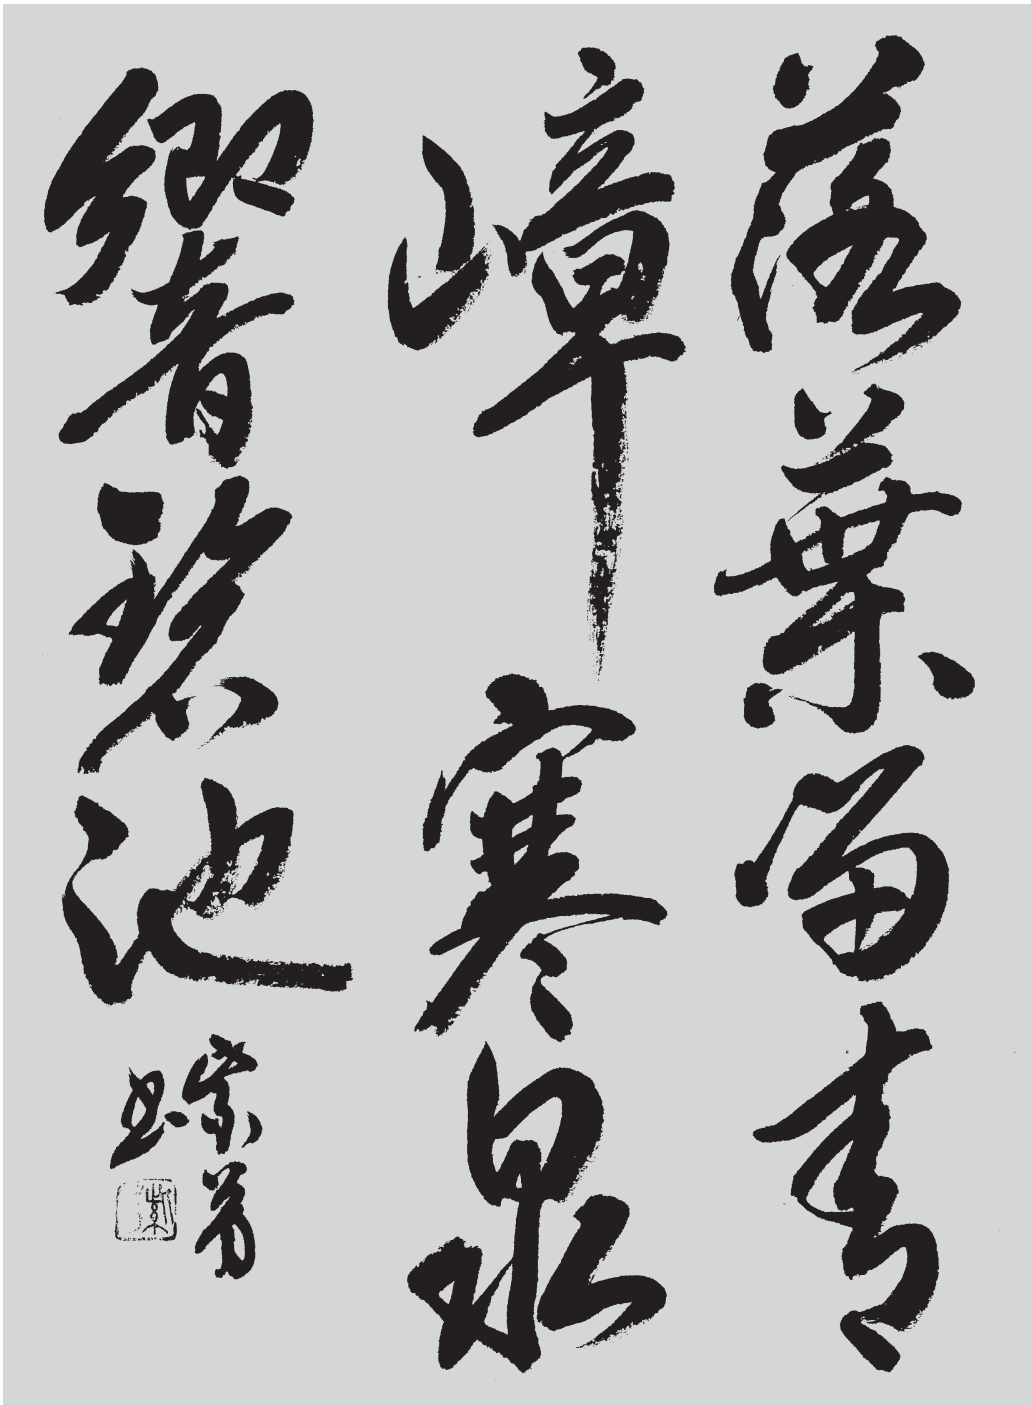 落葉留青
嶂寒泉
響碧池
紫
紫